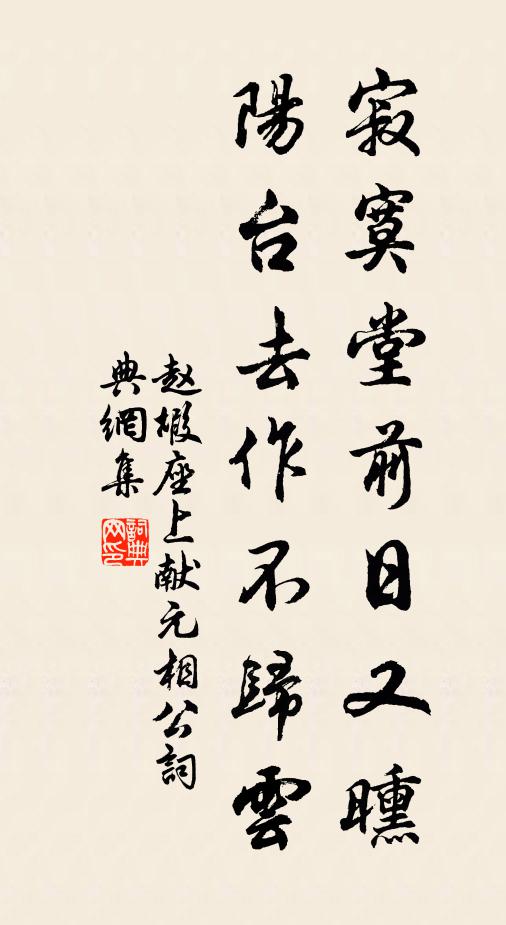 寂寞堂前日又曛
陽台去作不歸雲
赵嘏座上献元相公詞
典網集
詞典網印